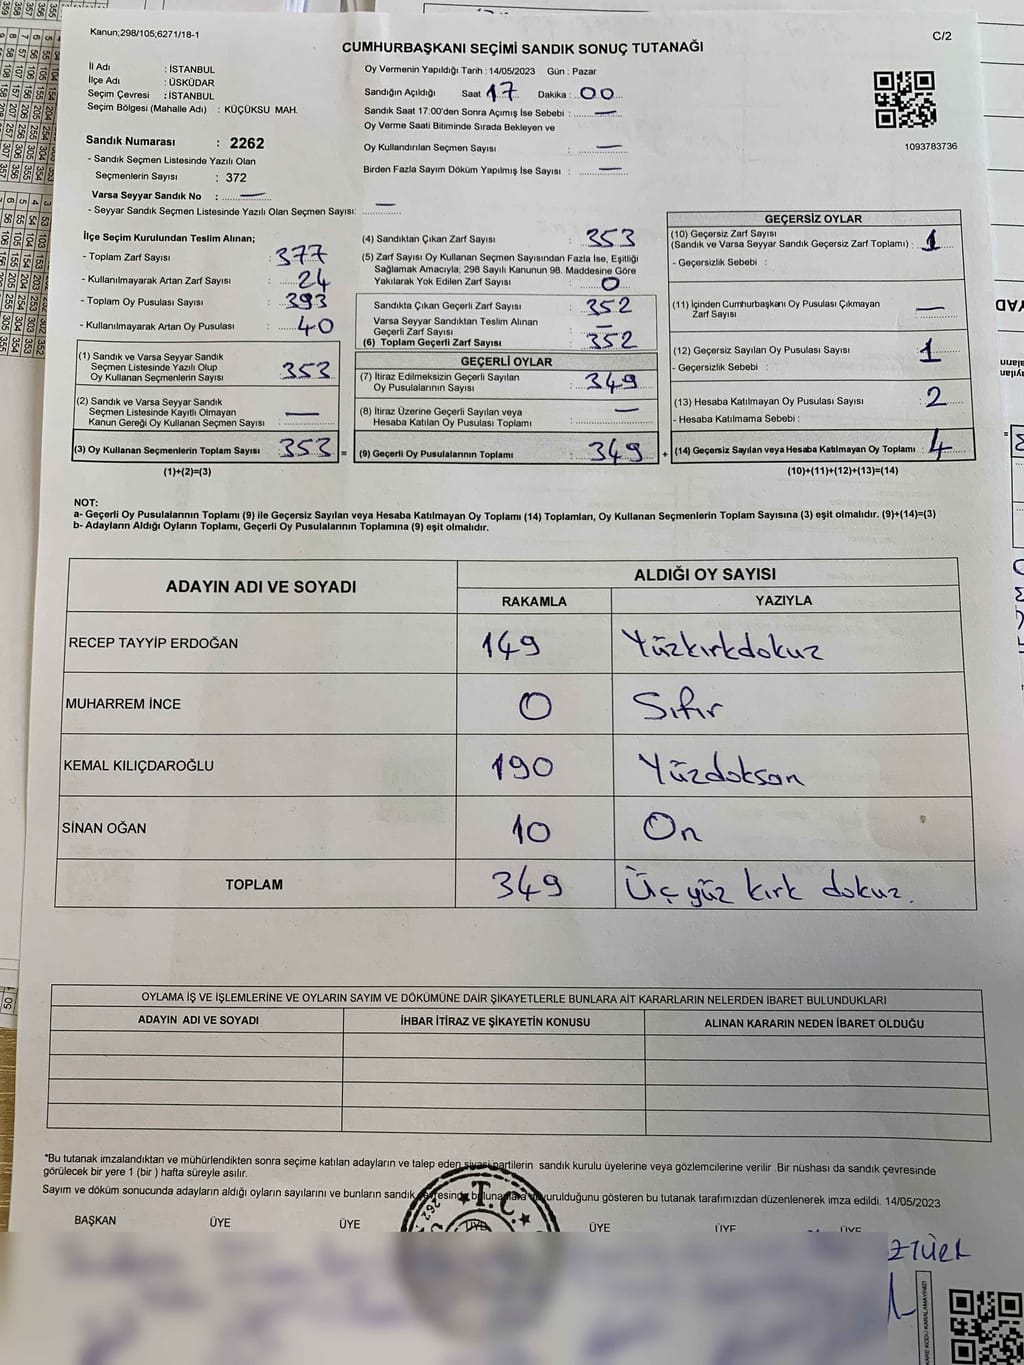 Kanun;298/105;6271/18-1
C/2
CUMHURBAŞKANI SEÇİMİ SANDIK SONUÇ TUTANAĞI
İl Adı : İSTANBUL
İlçe Adı : ÜSKÜDAR
Seçim Çevresi : İSTANBUL
Seçim Bölgesi (Mahalle Adı) : KÜÇÜKSU MAH.
Sandık Numarası : 2262
- Sandık Seçmen Listesinde Yazılı Olan
Seçmenlerin Sayısı : 372
Varsa Seyyar Sandık No : —
- Seyyar Sandık Seçmen Listesinde Yazılı Olan Seçmen Sayısı: —
Oy Vermenin Yapıldığı Tarih : 14/05/2023 Gün : Pazar
Sandığın Açıldığı Saat 17 Dakika : 00
Sandık Saat 17:00'den Sonra Açımış İse Sebebi : —
Oy Verme Saati Bitiminde Sırada Bekleyen ve
Oy Kullandırılan Seçmen Sayısı : —
Birden Fazla Sayım Döküm Yapılmış İse Sayısı : —
1093783736
İlçe Seçim Kurulundan Teslim Alınan;
- Toplam Zarf Sayısı : 377
- Kullanılmayarak Artan Zarf Sayısı : 24
- Toplam Oy Pusulası Sayısı : 393
- Kullanılmayarak Artan Oy Pusulası : 40
(1) Sandık ve Varsa Seyyar Sandık
Seçmen Listesinde Yazılı Olup
Oy Kullanan Seçmenlerin Sayısı : 353
(2) Sandık ve Varsa Seyyar Sandık
Seçmen Listesinde Kayıtlı Olmayan
Kanun Gereği Oy Kullanan Seçmen Sayısı : —
(3) Oy Kullanan Seçmenlerin Toplam Sayısı : 353 =
(1)+(2)=(3)
(4) Sandıktan Çıkan Zarf Sayısı : 353
(5) Zarf Sayısı Oy Kullanan Seçmen Sayısından Fazla İse, Eşitliği
Sağlamak Amacıyla; 298 Sayılı Kanunun 98. Maddesine Göre
Yakılarak Yok Edilen Zarf Sayısı : 0
Sandıkta Çıkan Geçerli Zarf Sayısı : 352
Varsa Seyyar Sandıktan Teslim Alınan
Geçerli Zarf Sayısı : —
(6) Toplam Geçerli Zarf Sayısı : 352
GEÇERLİ OYLAR
(7) İtiraz Edilmeksizin Geçerli Sayılan
Oy Pusulalarının Sayısı : 349
(8) İtiraz Üzerine Geçerli Sayılan veya
Hesaba Katılan Oy Pusulası Toplamı : —
(9) Geçerli Oy Pusulalarının Toplamı : 349 +
GEÇERSİZ OYLAR
(10) Geçersiz Zarf Sayısı
(Sandık ve Varsa Seyyar Sandık Geçersiz Zarf Toplamı) : 1
- Geçersizlik Sebebi :
(11) İçinden Cumhurbaşkanı Oy Pusulası Çıkmayan
Zarf Sayısı : —
(12) Geçersiz Sayılan Oy Pusulası Sayısı : 1
- Geçersizlik Sebebi :
(13) Hesaba Katılmayan Oy Pusulası Sayısı : 2
- Hesaba Katılmama Sebebi :
(14) Geçersiz Sayılan veya Hesaba Katılmayan Oy Toplamı : 4
(10)+(11)+(12)+(13)=(14)
NOT:
a- Geçerli Oy Pusulalarının Toplamı (9) ile Geçersiz Sayılan veya Hesaba Katılmayan Oy Toplamı (14) Toplamları, Oy Kullanan Seçmenlerin Toplam Sayısına (3) eşit olmalıdır. (9)+(14)=(3)
b- Adayların Aldığı Oyların Toplamı, Geçerli Oy Pusulalarının Toplamına (9) eşit olmalıdır.
ADAYIN ADI VE SOYADI
ALDIĞI OY SAYISI
RAKAMLA YAZIYLA
RECEP TAYYİP ERDOĞAN 149 Yüzkırkdokuz
MUHARREM İNCE 0 Sıfır
KEMAL KILIÇDAROĞLU 190 Yüzdoksan
SİNAN OĞAN 10 On
TOPLAM 349 Üç yüz kırk dokuz.
OYLAMA İŞ VE İŞLEMLERİNE VE OYLARIN SAYIM VE DÖKÜMÜNE DAİR ŞİKAYETLERLE BUNLARA AİT KARARLARIN NELERDEN İBARET BULUNDUKLARI
ADAYIN ADI VE SOYADI İHBAR İTİRAZ VE ŞİKAYETİN KONUSU ALINAN KARARIN NEDEN İBARET OLDUĞU
*Bu tutanak imzalandıktan ve mühürlendikten sonra seçime katılan adayların ve talep eden siyasi partilerin sandık kurulu üyelerine veya gözlemcilerine verilir. Bir nüshası da sandık çevresinde
görülecek bir yere 1 (bir ) hafta süreyle asılır.
Sayım ve döküm sonucunda adayların aldığı oyların sayılarını ve bunların sandık çevresinde duyurulduğunu gösteren bu tutanak tarafımızdan düzenlenerek imza edildi. 14/05/2023
BAŞKAN ÜYE ÜYE ÜYE ÜYE ÜYE ÜYE
T.C.
ZTÜRK